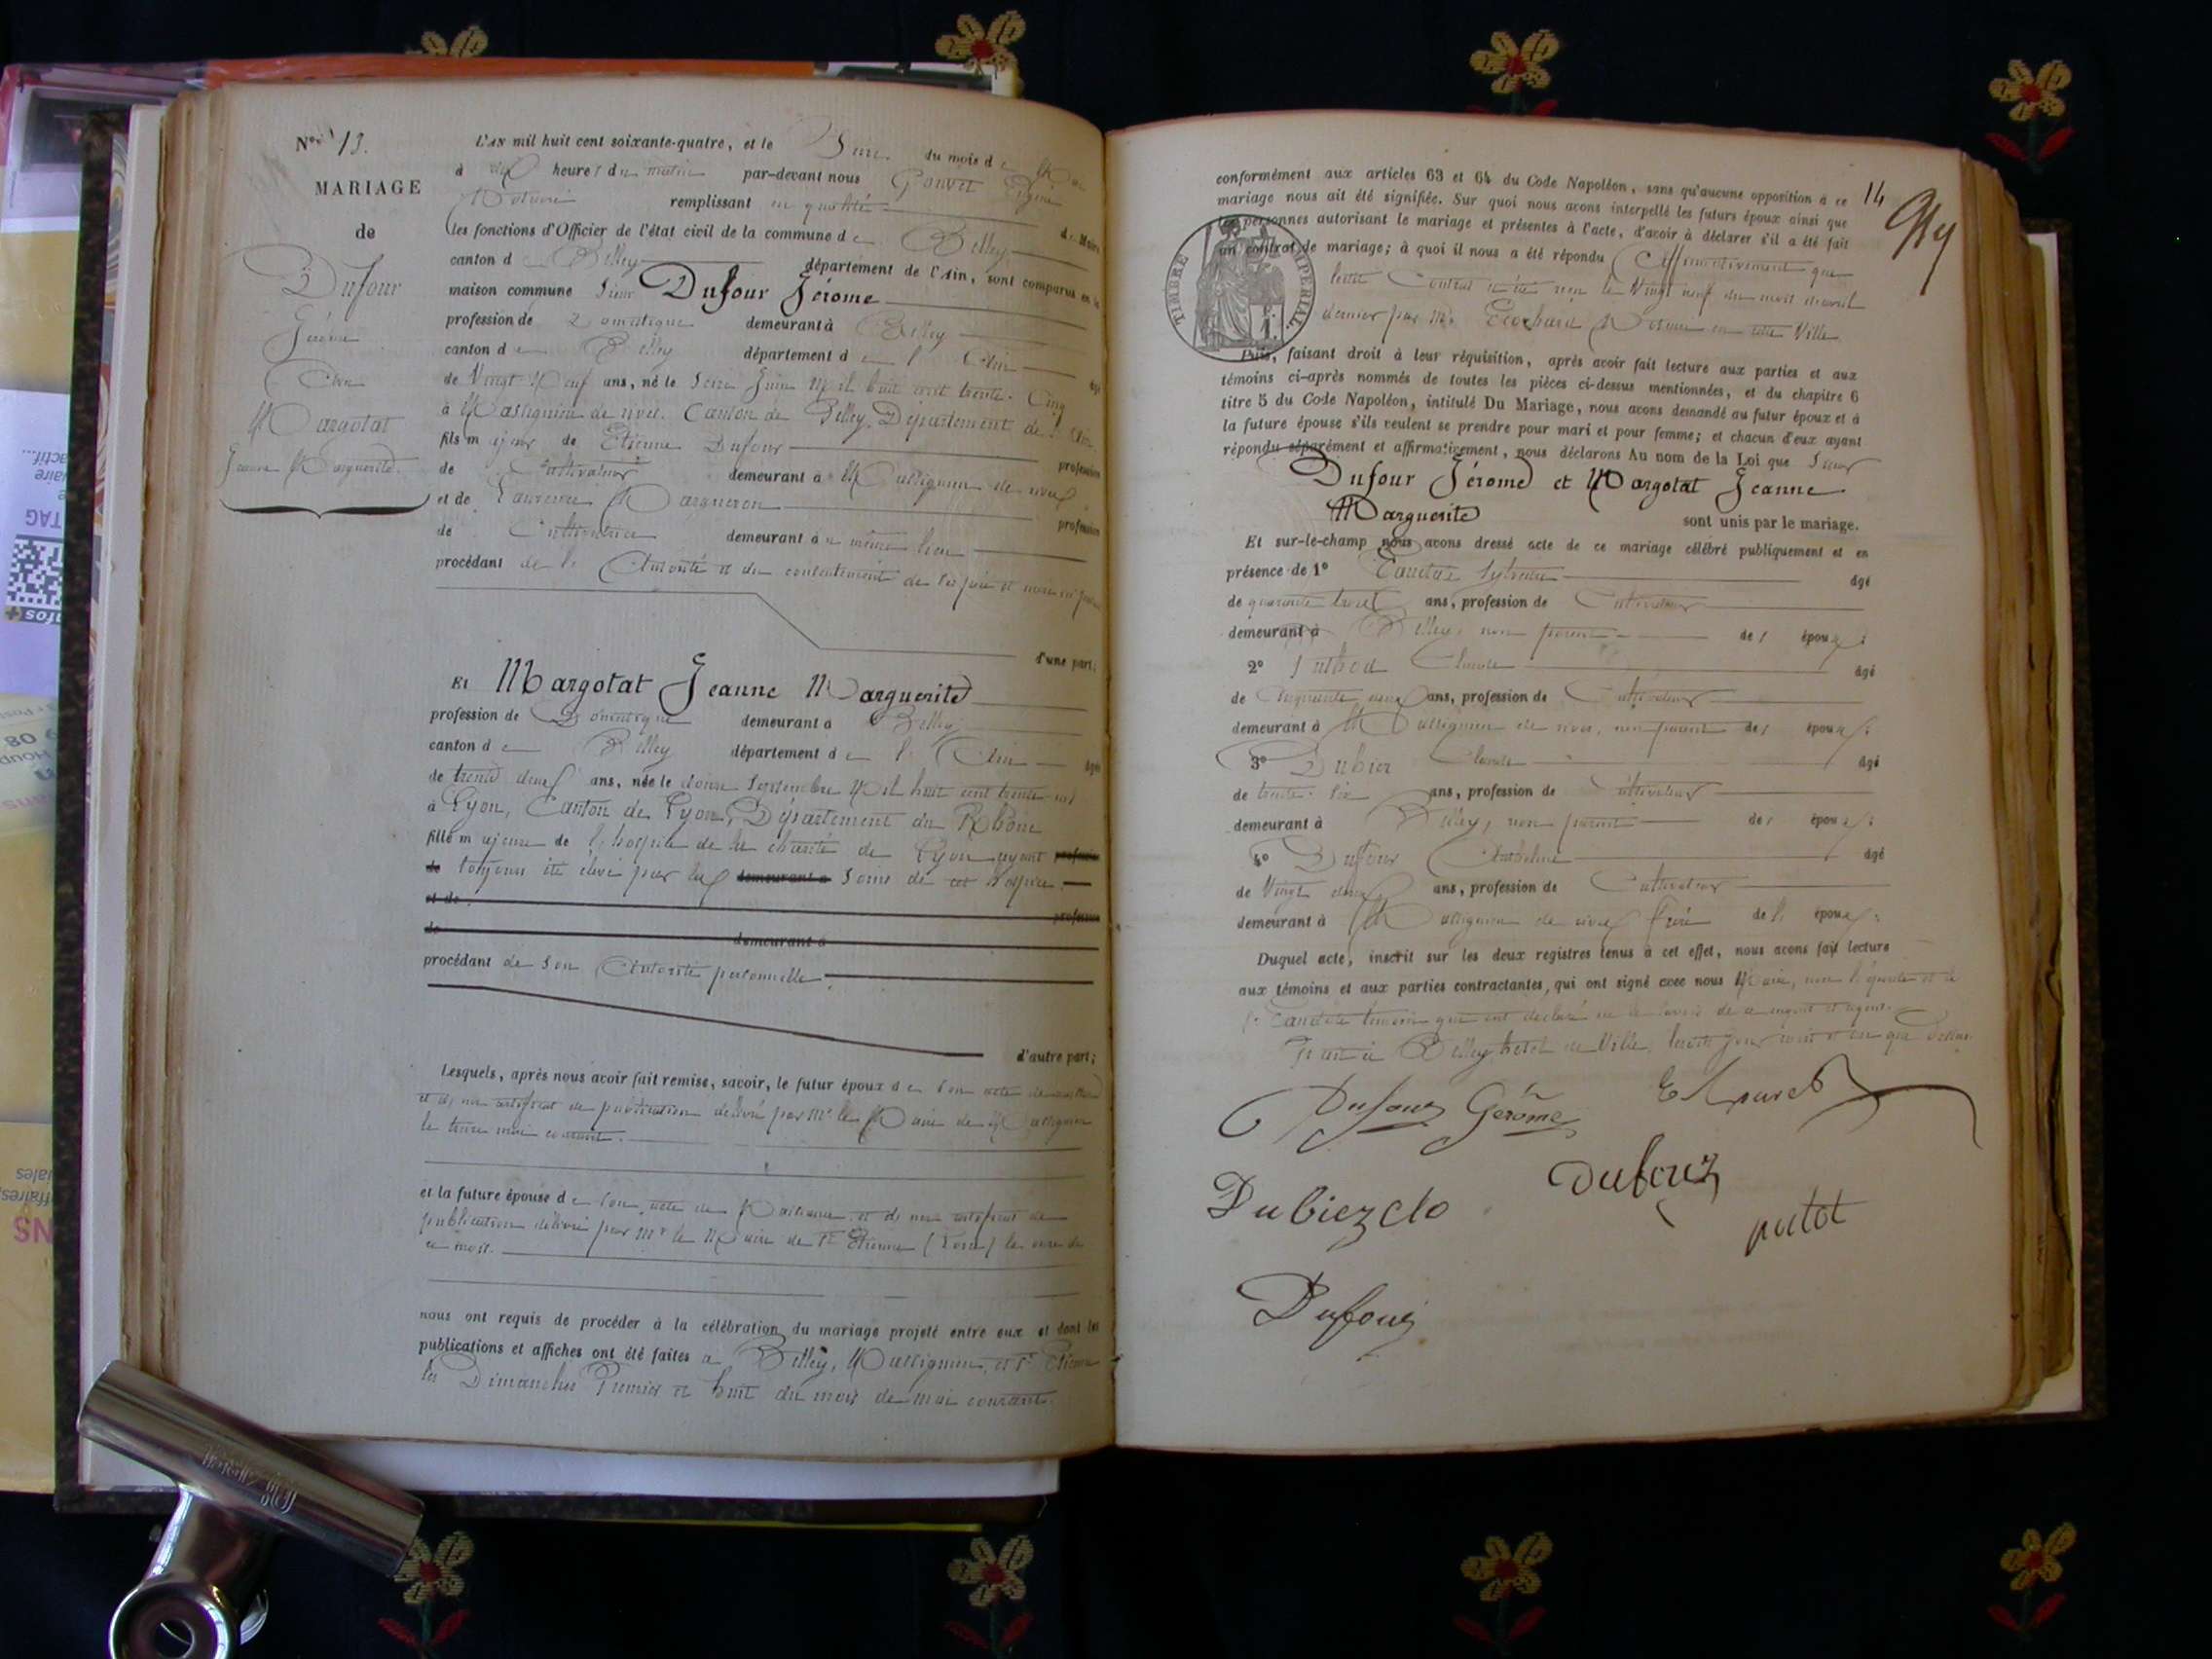 N° 13.
MARIAGE
de
Dufour
Jérôme
Et
Margotat
Jeanne Marguerite.
L'AN mil huit cent soixante-quatre, et le Seize du mois de Mai
à dix heures du matin par-devant nous
Notaire remplissant en qualité de Maire
les fonctions d'Officier de l'état civil de la commune de Belley
canton de Belley département de l'Ain, sont comparus en la
maison commune Sieur Dufour Jérome
profession de Domestique demeurant à Belley
canton de Belley département de l'Ain âgé
de Vingt Neuf ans, né le Seize Juin Mil huit cent trente-Cinq
à Massignieu de rives. Canton de Belley, Département de l'Ain
fils majeur de Etienne Dufour profession
de Cultivateur demeurant à Massignieu de rives
et de Laurence Margueron profession
de Cultivatrice demeurant au même lieu
procédant de l'Autorité et du consentement de ses père et mère
d'une part;
Et Margotat Jeanne Marguerite
profession de Domestique demeurant à Belley
canton de Belley département de l'Ain âgé
de trente deux ans, née le douze Septembre Mil huit cent trente un
à Lyon, Canton de Lyon, Département du Rhône
fille majeure de l'hospice de la charité de Lyon ayant profession
de toujours été élevé par les demeurant à soins de cet hospice.
et de profession
de demeurant à
procédant de son Autorité personnelle.
d'autre part;
Lesquels, après nous avoir fait remise, savoir, le futur époux de son acte de naissance
et d'un certificat de publication délivré par Mr le Maire de Massignieu
le treize mai courant.
et la future épouse de son acte de Naissance et d'un certificat de
publication délivré par Mr le Maire de St Etienne (Loire) le onze de
ce mois.
nous ont requis de procéder à la célébration du mariage projeté entre eux et dont les
publications et affiches ont été faites à Belley, Massignieu, et St Etienne
les Dimanches Premier et huit du mois de mai courant.
14
conformément aux articles 63 et 64 du Code Napoléon, sans qu'aucune opposition à ce
mariage nous ait été signifiée. Sur quoi nous avons interpellé les futurs époux ainsi que
les personnes autorisant le mariage et présentes à l'acte, d'avoir à déclarer s'il a été fait
un contrat de mariage; à quoi il nous a été répondu Affirmativement que
ledit Contrat a été reçu le Vingt neuf du mois d'avril
dernier par Me Ecochard Notaire en cette Ville
TIMBRE IMPERIAL.
Puis, faisant droit à leur réquisition, après avoir fait lecture aux parties et aux
témoins ci-après nommés de toutes les pièces ci-dessus mentionnées, et du chapitre 6
titre 5 du Code Napoléon, intitulé Du Mariage, nous avons demandé au futur époux et à
la future épouse s'ils veulent se prendre pour mari et pour femme; et chacun d'eux ayant
répondu séparément et affirmativement, nous déclarons Au nom de la Loi que Sieur
Dufour Jérome et Margotat Jeanne
Marguerite sont unis par le mariage.
Et sur-le-champ nous avons dressé acte de ce mariage célébré publiquement et en
présence de 1° Sylvain âgé
de quarante trois ans, profession de Cultivateur
demeurant à Belley, non parent des époux;
2° Claude âgé
de Cinquante ans, profession de Cultivateur
demeurant à Massignieu de rives, non parent des époux;
3° Dubiez Claude âgé
de trente-six ans, profession de Cultivateur
demeurant à Belley, non parent des époux;
4° Dufour Anthelme âgé
de Vingt deux ans, profession de Cultivateur
demeurant à Massignieu de rives frère de l'époux;
Duquel acte, inscrit sur les deux registres tenus à cet effet, nous avons fait lecture
aux témoins et aux parties contractantes, qui ont signé avec nous Maire, non l'épouse et le
témoin qui ont déclaré ne le savoir de ce enquis et requis.
Fait à Belley, hôtel de Ville, lesdits jour mois et an que dessus.
Dufour Gerôme
Dubiez clo
Dufour